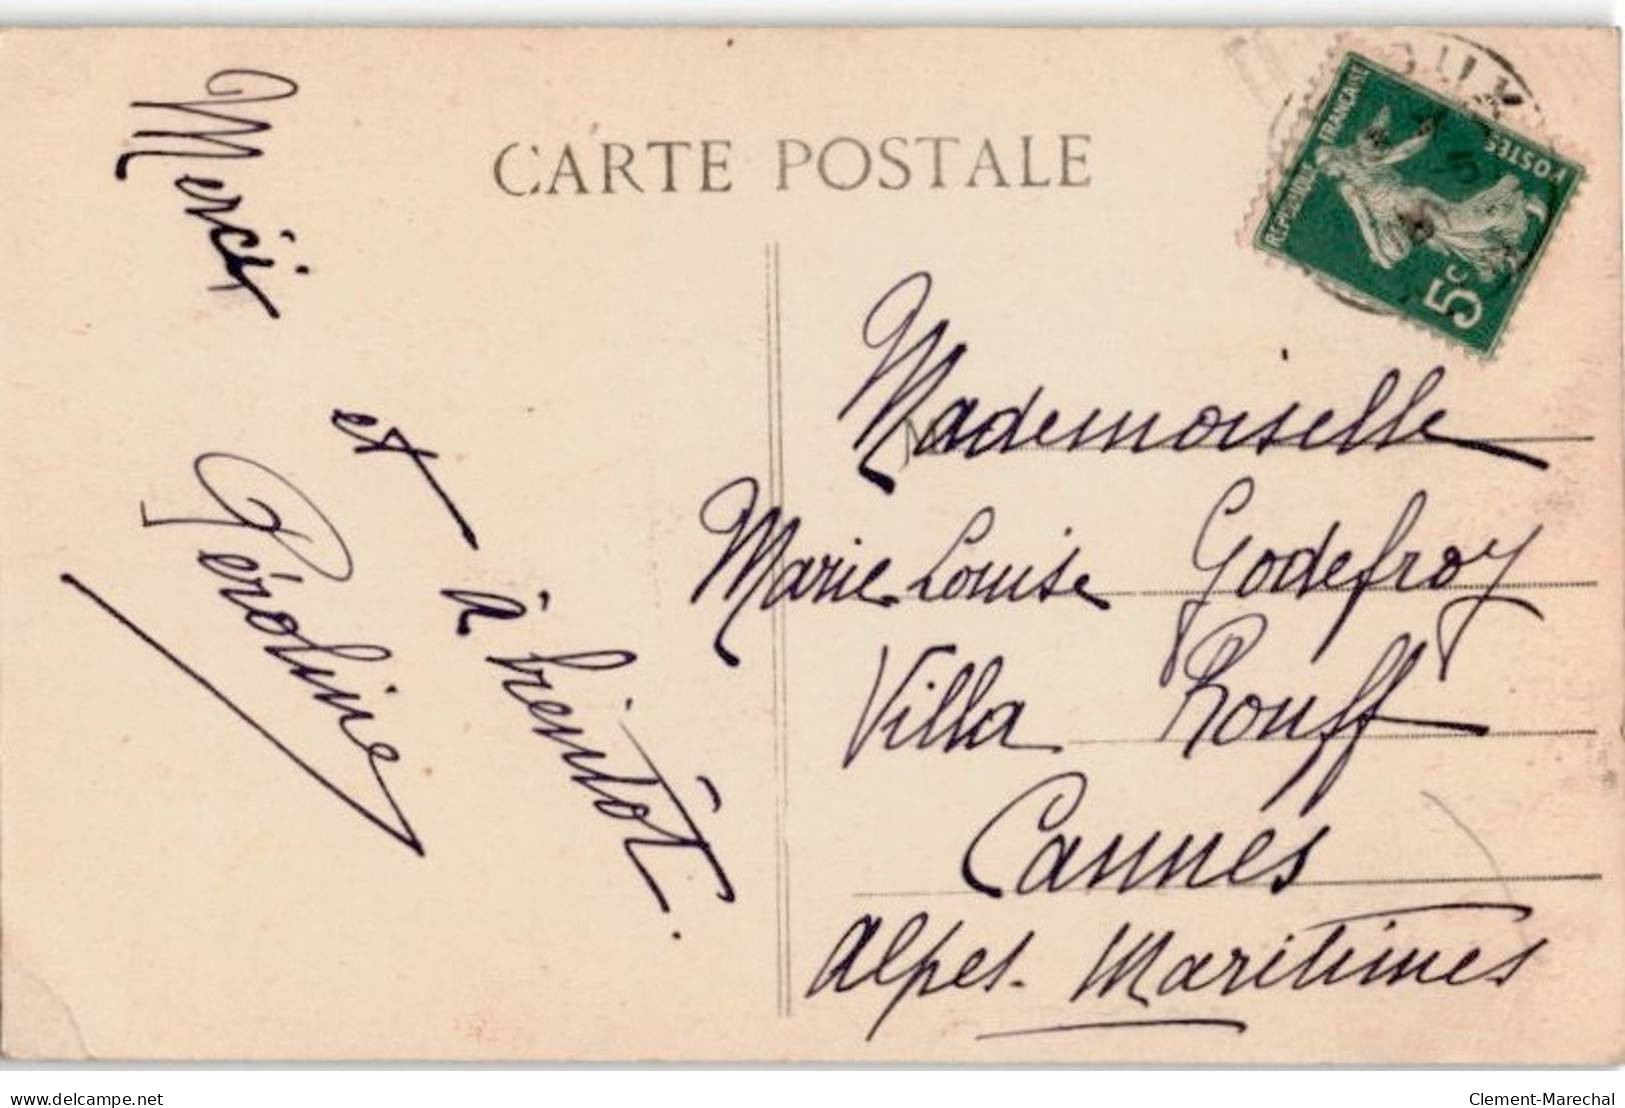 CARTE POSTALE
RÉPUBLIQUE FRANÇAISE
POSTES
5c
Merci
et
à bientôt.
Péroline
Mademoiselle
Marie Louise Godefroy
Villa Rouff
Cannes
Alpes-Maritimes
delcampe.net
Clement-Marechal